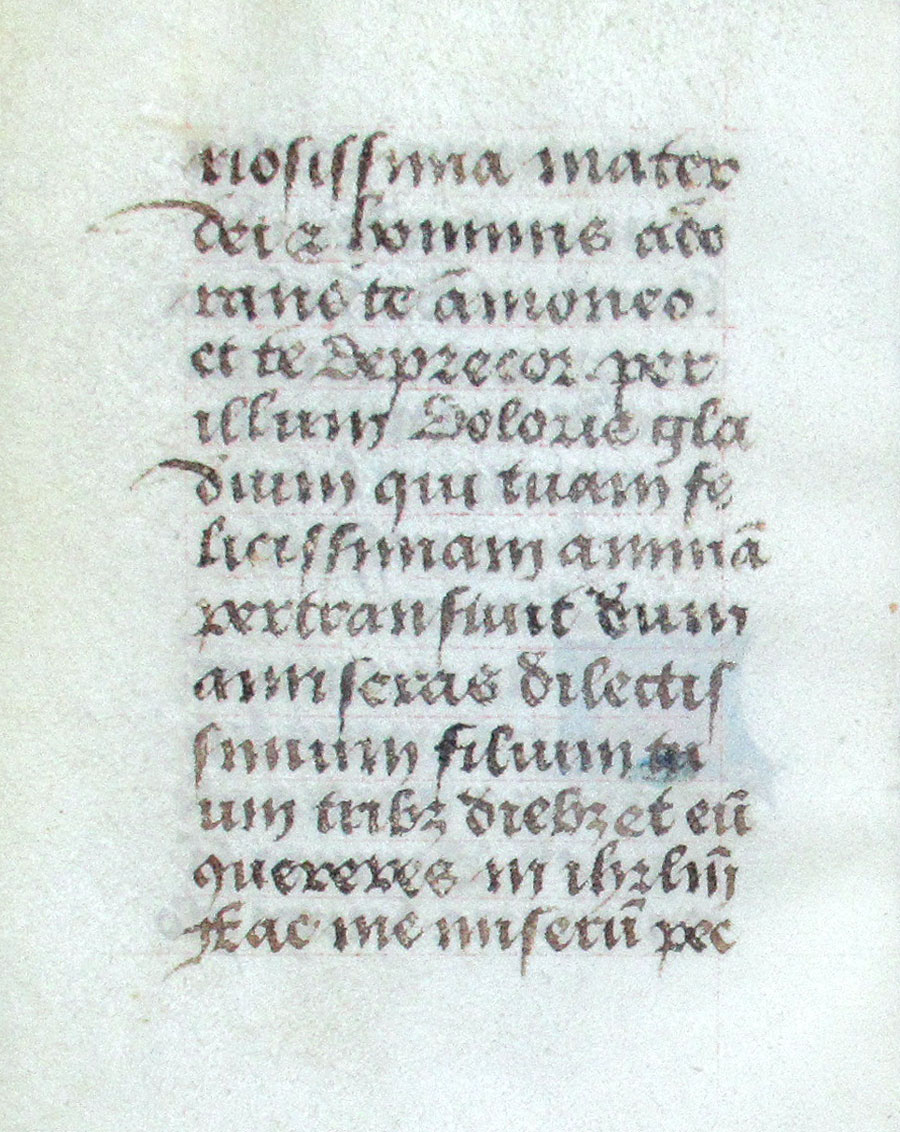 riosissima mater
dei ⁊ hominis ado
rans te āmoneo.
et te deprecor per
illum doloris gla
dium qui tuam fe
licissimam animā
pertransiuit dum
amiseras dilectis
simum filium tu
um tribꝫ diebꝫ et eū
quereres in ihrlm̄
ffac me miserū pec